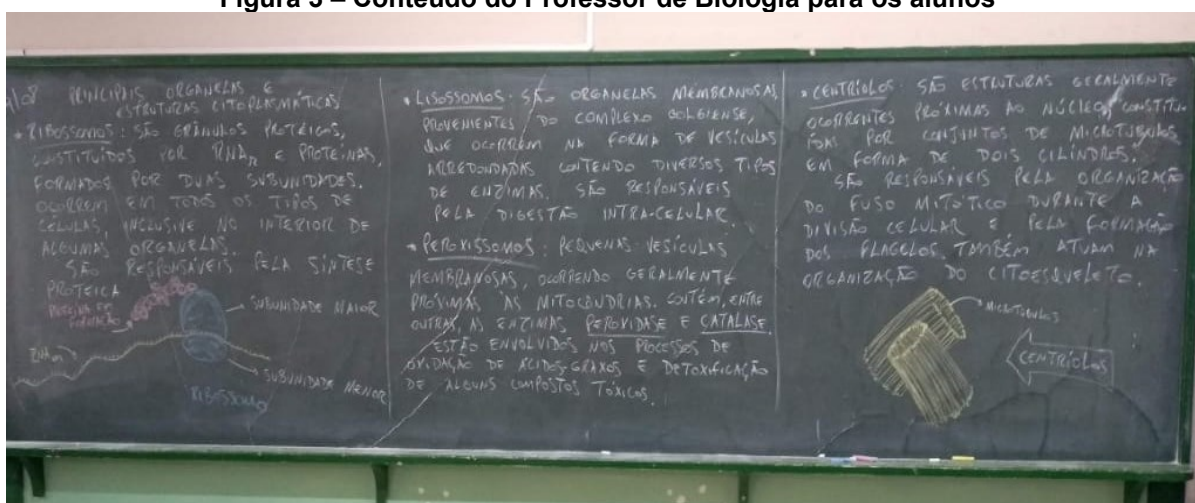 Figura 3 – Conteúdo do Professor de Biologia para os alunos
PRINCIPAIS ORGANELAS E
ESTRUTURAS CITOPLASMÁTICAS
• RIBOSSOMOS: SÃO GRÂNULOS PROTÉICOS,
CONSTITUÍDOS POR RNAn E PROTEÍNAS,
FORMADOS POR DUAS SUBUNIDADES.
OCORREM EM TODOS OS TIPOS DE
CÉLULAS, INCLUSIVE NO INTERIOR DE
ALGUMAS ORGANELAS.
SÃO RESPONSÁVEIS PELA SÍNTESE
PROTEICA
PROTEÍNA EM
FORMAÇÃO
SUBUNIDADE MAIOR
RNAm
SUBUNIDADE MENOR
RIBOSSOMO
• LISOSSOMOS: SÃO ORGANELAS MEMBRANOSAS,
PROVENIENTES DO COMPLEXO GOLGIENSE,
QUE OCORREM NA FORMA DE VESÍCULAS
ARREDONDADAS CONTENDO DIVERSOS TIPOS
DE ENZIMAS. SÃO RESPONSÁVEIS
PELA DIGESTÃO INTRA-CELULAR
• PEROXISSOMOS: PEQUENAS VESÍCULAS
MEMBRANOSAS, OCORRENDO GERALMENTE
PRÓXIMAS ÀS MITOCONDRIAS. CONTÉM, ENTRE
OUTRAS, AS ENZIMAS PEROXIDASE E CATALASE.
ESTÃO ENVOLVIDOS NOS PROCESSOS DE
OXIDAÇÃO DE ÁCIDOS GRAXOS E DETOXIFICAÇÃO
DE ALGUNS COMPOSTOS TÓXICOS.
• CENTRÍOLOS: SÃO ESTRUTURAS GERALMENTE
OCORRENTES PRÓXIMAS AO NÚCLEO, CONSTITU-
ÍDAS POR CONJUNTOS DE MICROTUBULOS
EM FORMA DE DOIS CILINDROS.
SÃO RESPONSÁVEIS PELA ORGANIZAÇÃO
DO FUSO MITÓTICO DURANTE A
DIVISÃO CELULAR E PELA FORMAÇÃO
DOS FLAGELOS. TAMBÉM ATUAM NA
ORGANIZAÇÃO DO CITOESQUELETO.
MICROTUBULOS
CENTRÍOLOS